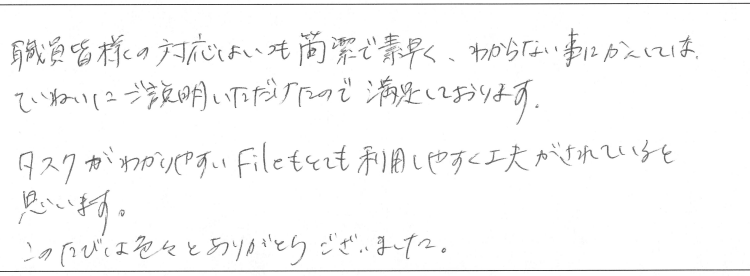 職員皆様の対応はいつも簡潔で素早く、わからない事にかんしては、
ていねいにご説明いただけたので満足しております。
タスクがわかりやすいFileもとても利用しやすく工夫がされていると
思います。
このたびは色々とありがとうございました。